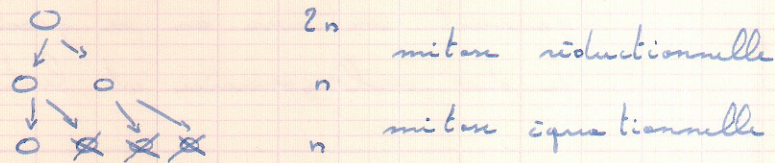 2n
mitose réductionnelle
n
mitose équationnelle
n